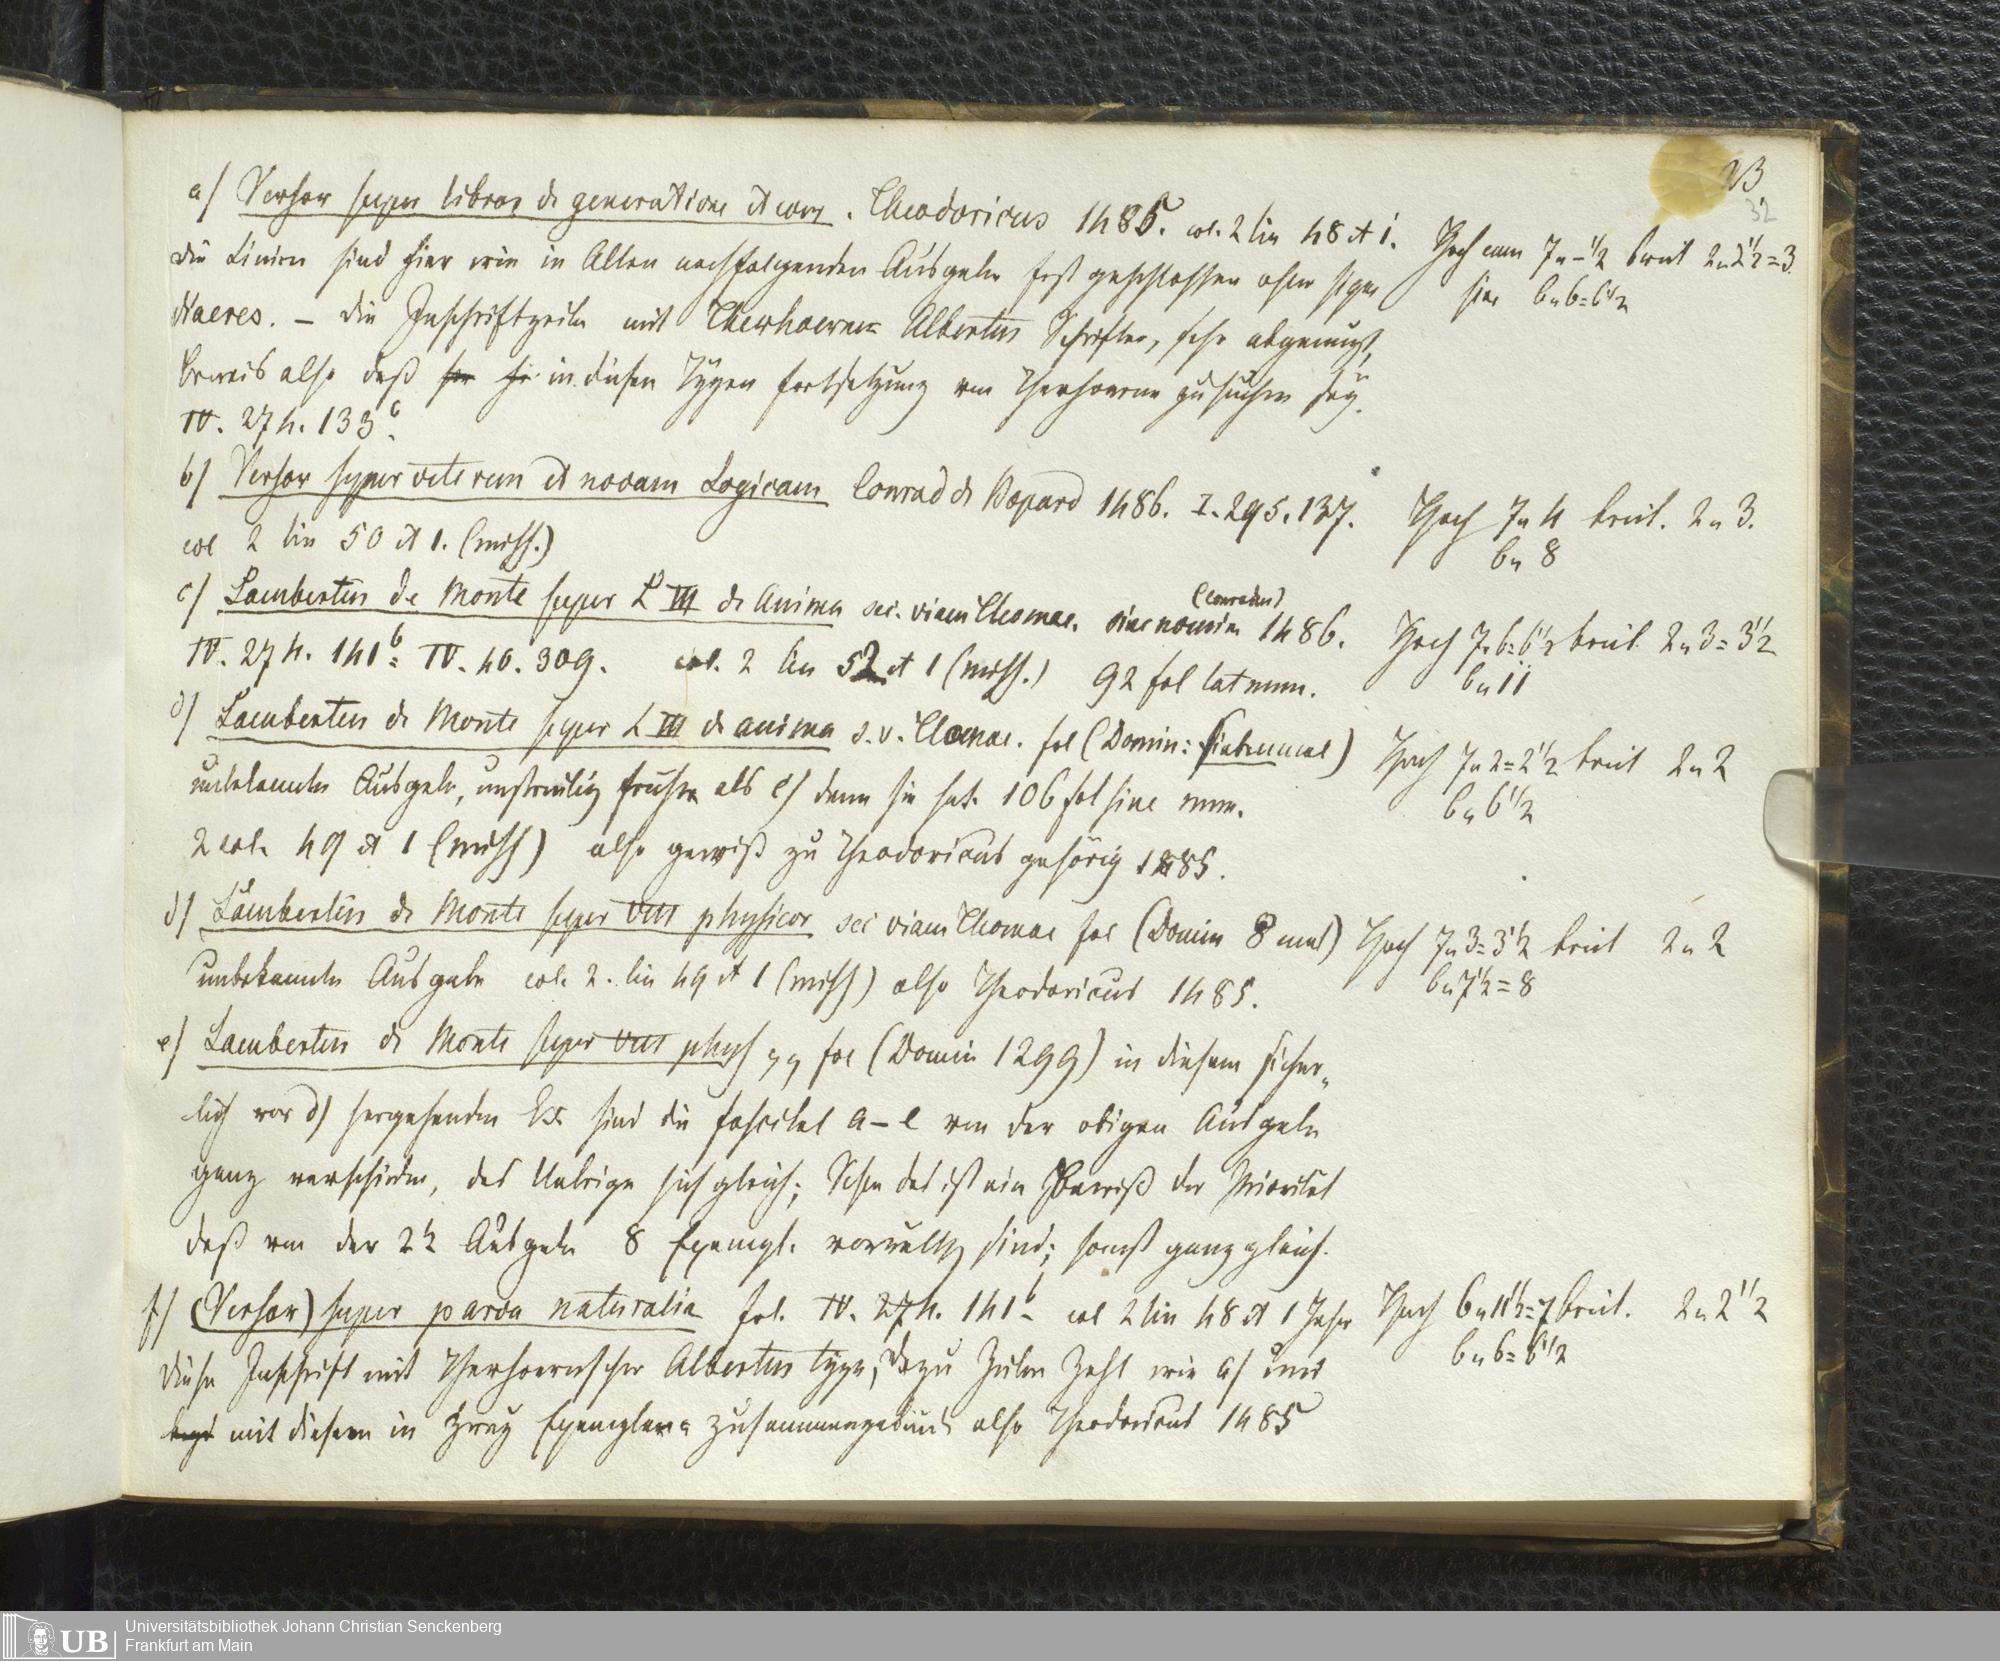 23
32
a) Versor super libros de generatione et corr. Theodoricus 1485. col. 2 lin 48 et 1. Hoch 7 breit
die Linien sind hier wie in Allen nachfolgenden Ausgaben fest geschlossen ohne sign
6 u 6 = 6 1/2
Die Inschriftzeile mit Therhoernen Albertus Schriften, sehr abgenutzt,
Beweis also daß in diesen Typen Fortsetzung von Therhoerne zu suchen sey.
IV. 274. 133 b
b) Versor super veterem et novam Logicam Conrad de Bopard 1486. I. 295. 137. Hoch 7 u 4 breit. 2 u 3.
col 2 lin 50 et 1. (miss.)
6 u 8
c) Lambertus de Monte super L III de Anima sec. viam Thomae. sine nomine (Conradus) 1486. Hoch 7 u 6 = 6 1/2 breit 2 u 3 = 3 1/2
IV. 274. 141 b = IV. 40. 309. col. 2 lin 52 et 1 (miss.) 92 fol lat num.
6 u 11
d) Lambertus de Monte super L III de anima s. v. Thomae. fol (Domin: siebenmal) Hoch 7 u 2 = 2 1/2 breit 2 u 2
unbekannte Ausgabe, unstreitig früher als c) denn sie hat 106 fol sine num.
6 u 6 1/2
2 col. 49 et 1 (miss) also gewiß zu Theodoricus gehörig 1485.
d) Lambertus de Monte super VIII physicor sec viam Thomae fol (Domin 8 mal) Hoch 7 u 3 = 3 1/2 breit 2 u 2
unbekannte Ausgabe col. 2. lin 49 et 1 (miss) also Theodoricus 1485.
6 u 7 1/2 = 8
e) Lambertus de Monte super VIII phys fol (Domin 1299) in diesem sicher-
lich vor d) hergehenden Ex sind die fascikel a – l von der obigen Ausgabe
ganz verschieden, das Uebrige sich gleich; Schon das ist ein Beweiß der Priorität
daß von der Ausgabe 8 Exempl. vorräthig sind; sonst ganz gleich.
f) (Versor) super parva naturalia fol. IV. 274. 141 b col 2 lin 48 et 1 Hoch 6 u 11 1/2 = 7 breit. 2 u 2 1/2
Diese Inschrift mit Therhoernscher Albertus type, dazu Zeilen Zahl wie a) und
6 u 6 = 6 1/2
mit diesem in zwey Exemplaren zusammengebunden also Theodoricus 1485
Universitätsbibliothek Johann Christian Senckenberg
Frankfurt am Main
UB